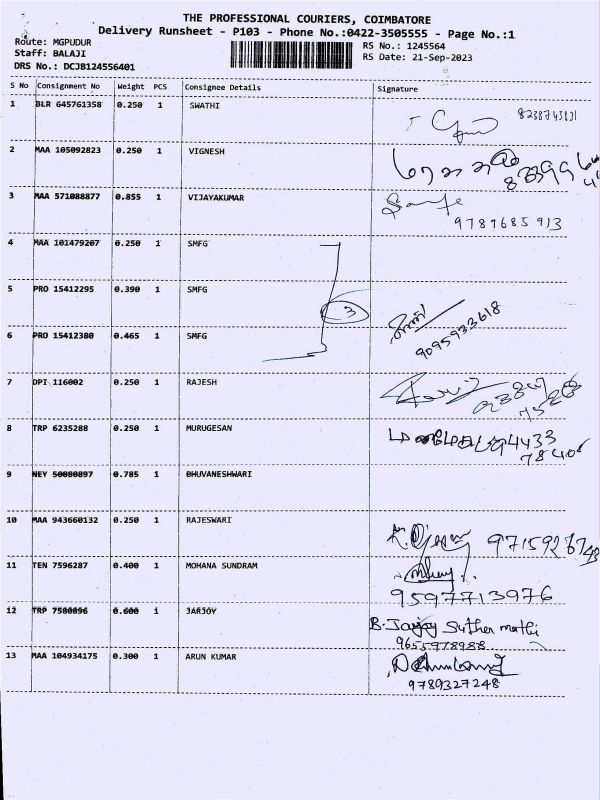 THE PROFESSIONAL COURIERS, COIMBATORE
Delivery Runsheet - P103 - Phone No.:0422-3505555 - Page No.:1
Route: MGPUDUR RS No.: 1245564
Staff: BALAJI RS Date: 21-Sep-2023
DRS No.: DCJB124556401
S No Consignment No Weight PCS Consignee Details Signature
1 BLR 645761358 0.250 1 SWATHI
2 MAA 105092823 0.250 1 VIGNESH
3 MAA 571088877 0.855 1 VIJAYAKUMAR
9789685913
4 MAA 101479207 0.250 1 SMFG
5 PRO 15412295 0.390 1 SMFG
3
6 PRO 15412380 0.465 1 SMFG
9095933618
7 DPI 116002 0.250 1 RAJESH
8 TRP 6235288 0.250 1 MURUGESAN
9 NEY 50080897 0.785 1 BHUVANESHWARI
10 MAA 943660132 0.250 1 RAJESWARI
11 TEN 7596287 0.400 1 MOHANA SUNDRAM
9597713976
12 TRP 7580896 0.600 1 JARJOY
B. Jarjoy Suther mathi
9655978988
13 MAA 104934175 0.300 1 ARUN KUMAR
9789327248